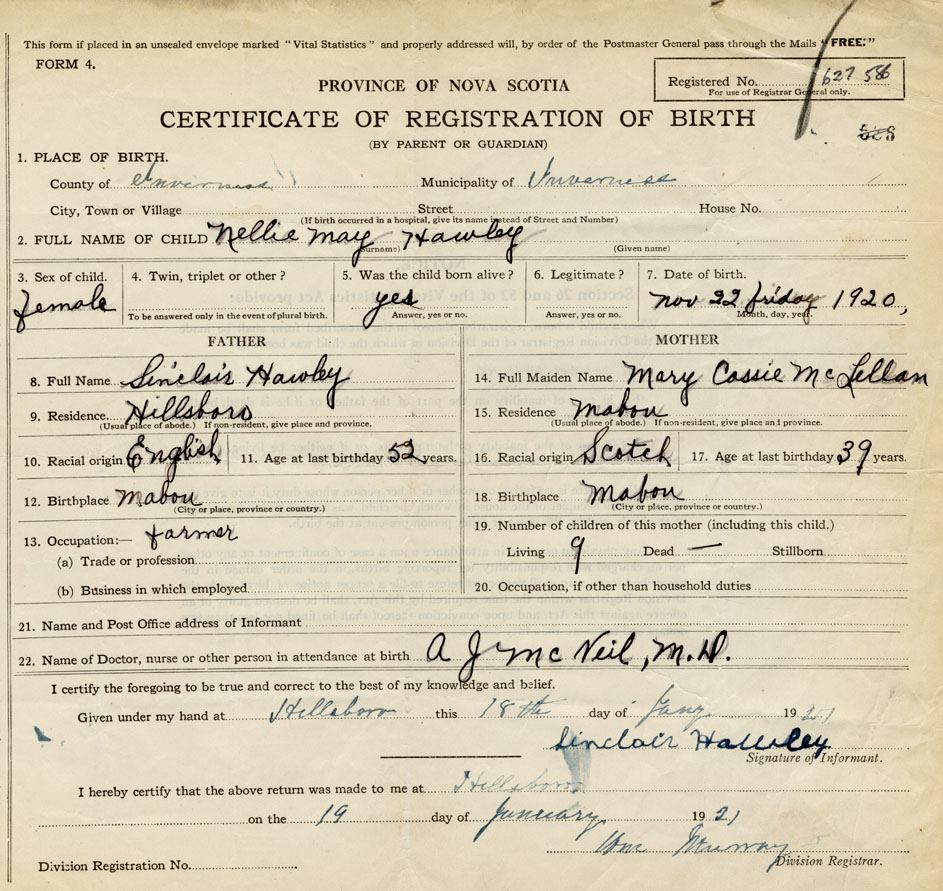 This form if placed in an unsealed envelope marked "Vital Statistics" and properly addressed will, by order of the Postmaster General pass through the Mails "FREE."
FORM 4.
Registered No. 627 586
For use of Registrar General only.
PROVINCE OF NOVA SCOTIA
CERTIFICATE OF REGISTRATION OF BIRTH
(BY PARENT OR GUARDIAN)
1. PLACE OF BIRTH.
County of Inverness Municipality of Inverness
City, Town or Village Street House No.
(If birth occurred in a hospital, give its name instead of Street and Number)
2. FULL NAME OF CHILD Nellie May Hawley
(Surname) (Given name)
3. Sex of child. 4. Twin, triplet or other? 5. Was the child born alive? 6. Legitimate? 7. Date of birth.
female yes Nov 22 friday 1920,
To be answered only in the event of plural birth. Answer, yes or no. Answer, yes or no. Month, day, year.
FATHER MOTHER
8. Full Name Sinclair Hawley 14. Full Maiden Name Mary Cassie McLellan
9. Residence Hillsboro 15. Residence Mabou
(Usual place of abode.) If non-resident, give place and province. (Usual place of abode.) If non-resident, give place and province.
10. Racial origin English 11. Age at last birthday 52 years. 16. Racial origin Scotch 17. Age at last birthday 39 years.
12. Birthplace Mabou 18. Birthplace Mabou
(City or place, province or country.) (City or place, province or country.)
13. Occupation:— farmer 19. Number of children of this mother (including this child.)
(a) Trade or profession Living 9 Dead — Stillborn
(b) Business in which employed 20. Occupation, if other than household duties
21. Name and Post Office address of Informant
22. Name of Doctor, nurse or other person in attendance at birth A J McNeil, M.D.
I certify the foregoing to be true and correct to the best of my knowledge and belief.
Given under my hand at Hillsboro this 18th day of Jany 1921
Sinclair Hawley
Signature of Informant.
I hereby certify that the above return was made to me at Hillsboro
on the 19 day of January 1921
Wm Murray
Division Registrar.
Division Registration No.